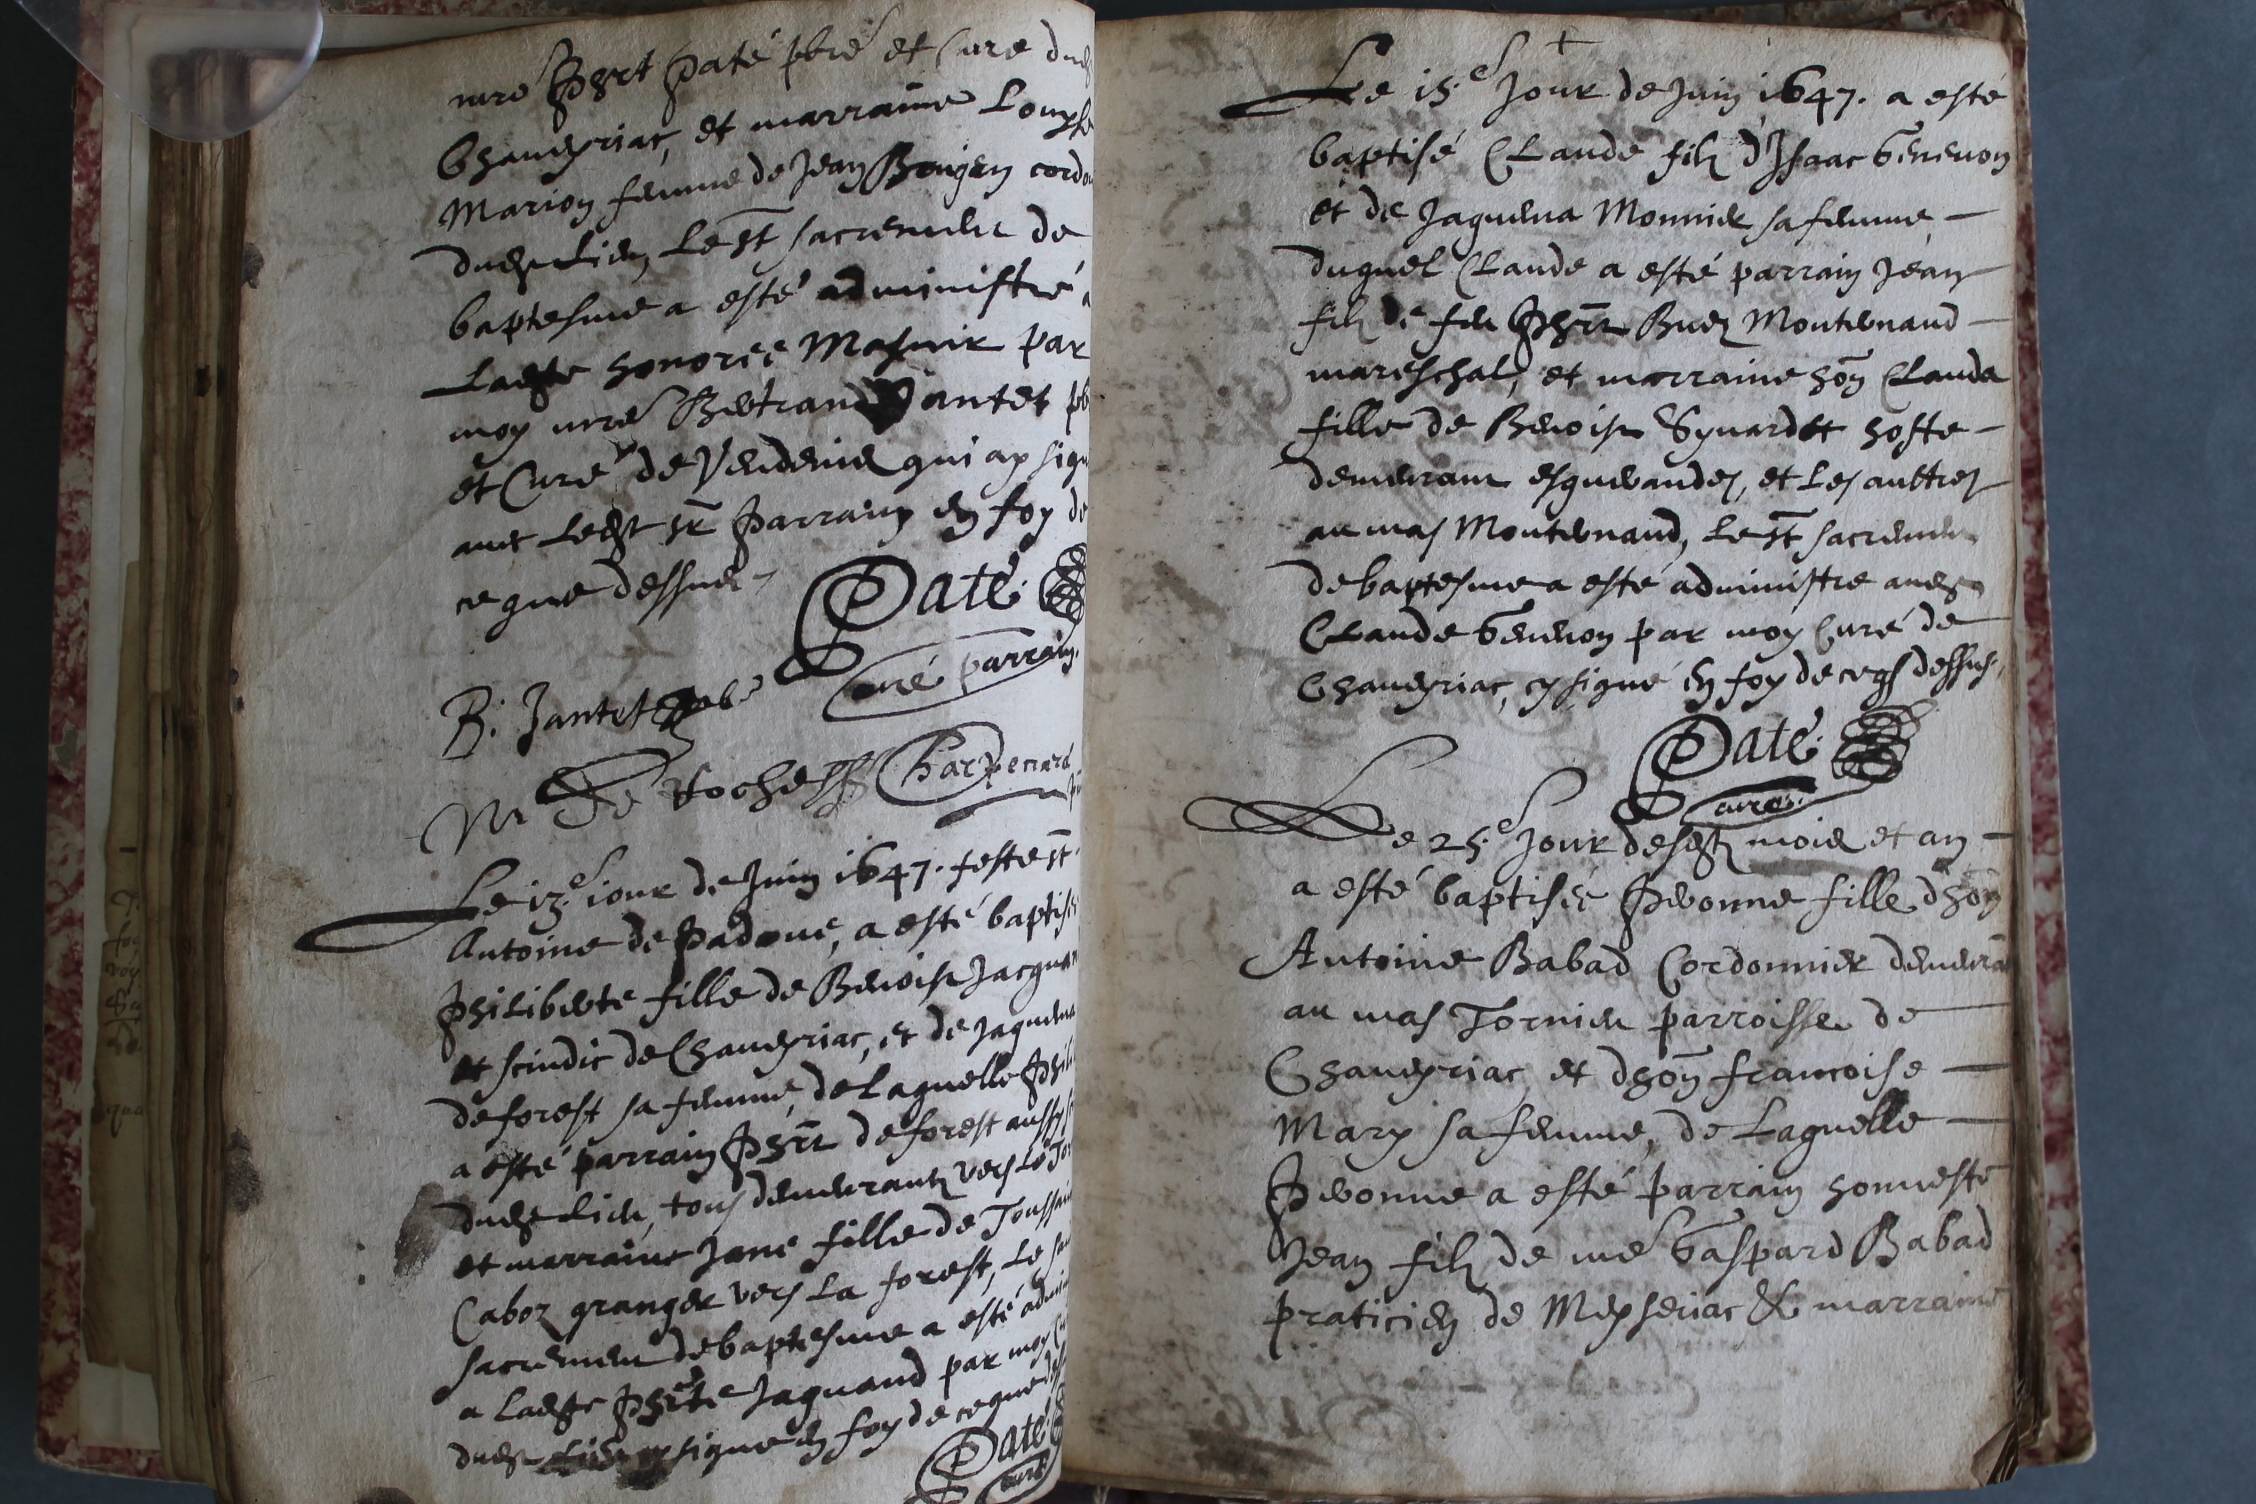 mre Phbrt Paté pbre et Cure dud
Chaveyriac, et marraine Louyse
Marion femme de Jean Bougen cordo
dudt Lieu, Le st sacrement de
baptesme a esté administré a
Ladte honorée Masuir par
moy mre Bertrand Jantet pb
et Curé de Vendenie qui ay sign
avec Ledt sr Parrain en foy de
ce que dessus
Paté
curé parrain.
B. Jantet pbr
Rochess Charpenard
Le 13.e iour de Juin 1647. feste st
Antoine de Padoue, a esté baptisé
Philiberte fille de Benoist Jacquan
et scindic de Chaveyriac, et de Jaquema
deforest sa femme, de Laquelle Phili
a esté parrain Phbrt deforest aussy
dudt Lieu, tous demeurantz vers Le Tor
et marraine Jane fille de Toussain
Caboz granger vers La forest, Le sai
sacrement de baptesme a esté admin
a Ladte Phbrte Jaquand par moy Cu
dudt Lieu ay signé en foy de ce que des
Paté
curé
Le 15.e Jour de Juin 1647. a esté
baptisé Claude filz d'Isaac Genevon
et de Jaquema Monnier sa femme
duquel Claude a esté parrain Jean
filz de feu Phbrt Buez Monternaud
mareschal, et marraine hon Clauda
fille de Benoist Synardet hoste
demeurant esguerandes, et Les auttres
au mas Monternaud, Le st sacrement
de baptesme a esté administré audt
Claude Genevon par moy Curé de
Chaveyriac, cy signé en foy de ce qs dessus,
Paté
curé
Le 25.e Jour desdtz mois et an
a esté baptisée Pevonne fille d'hon
Antoine Babad Cordonnier demeurã
au mas Tornieu parroisse de
Chaveyriac et d'hon francoise
Mary sa femme, de Laquelle
Pevonne a esté parrain honneste
Jean filz de me Gaspard Babad
praticien de Meyseriac & marraine